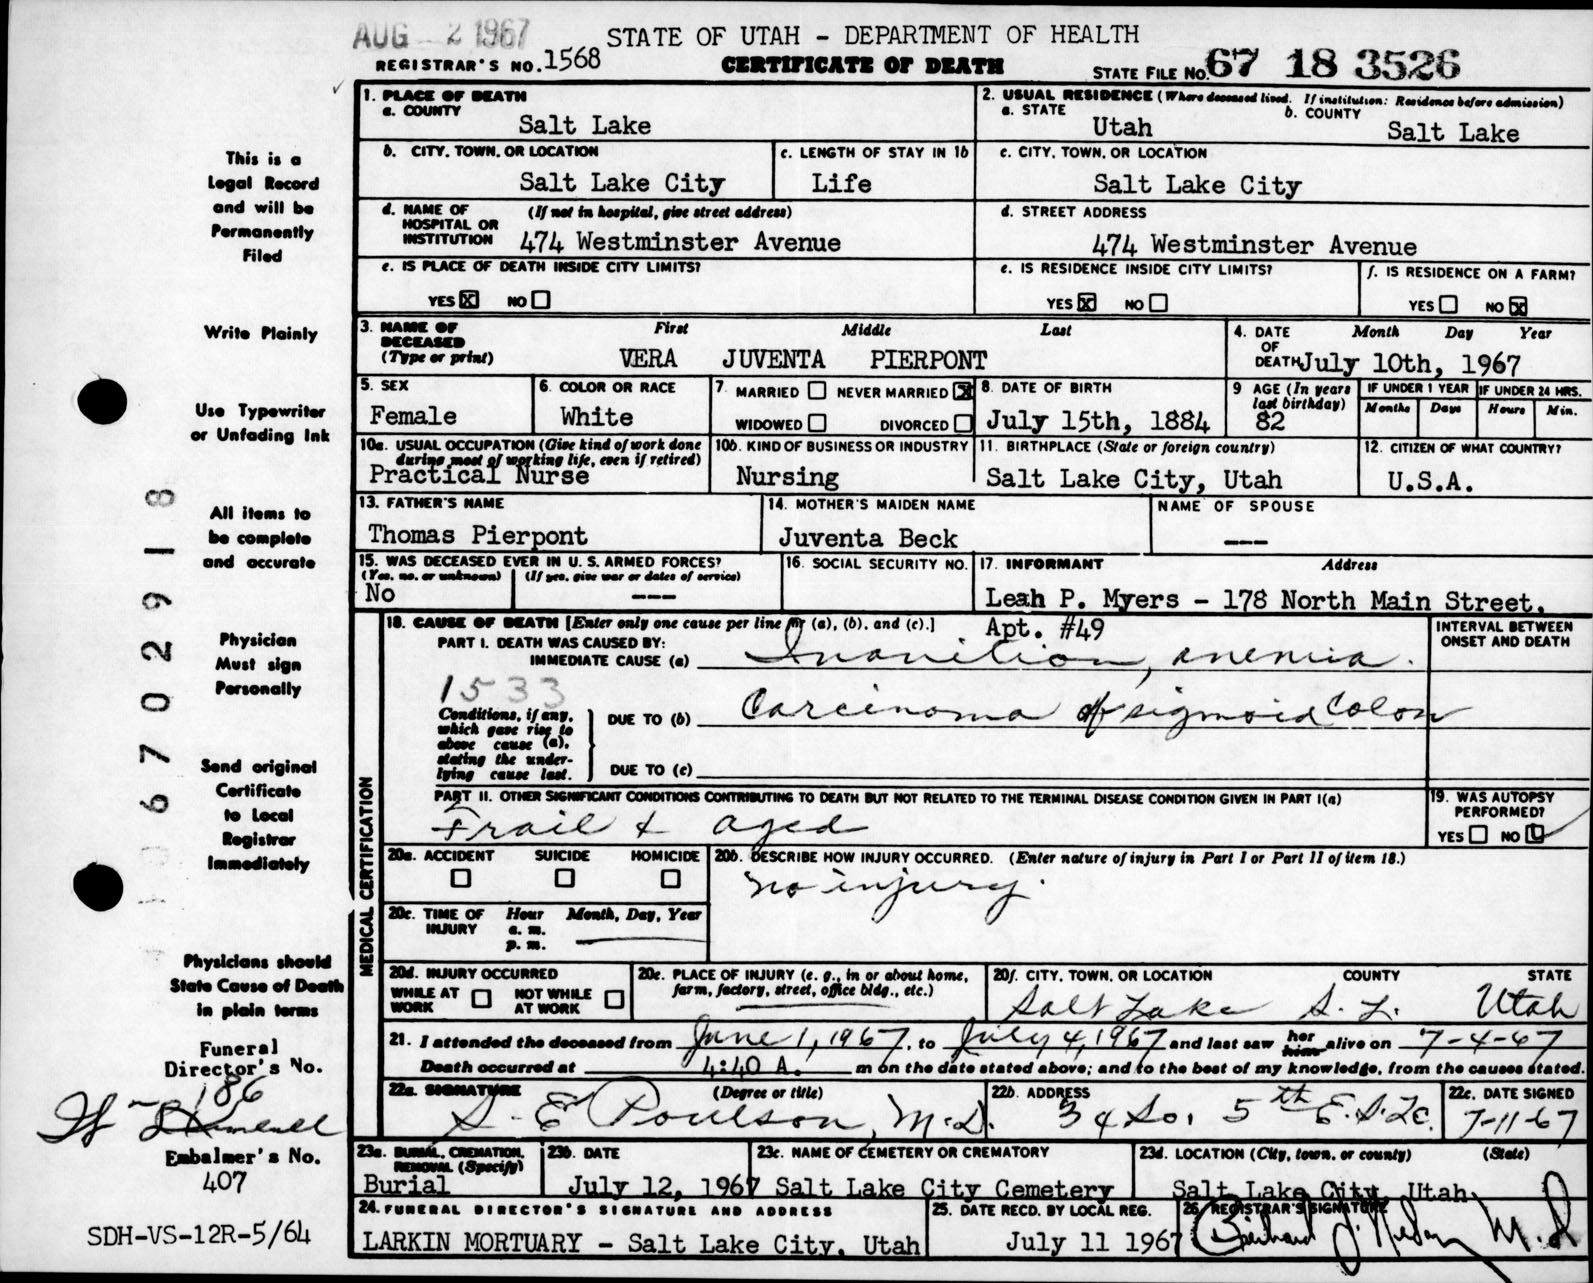 AUG 2 1967
STATE OF UTAH - DEPARTMENT OF HEALTH
REGISTRAR'S NO. 1568
CERTIFICATE OF DEATH
STATE FILE NO. 67 18 3526
This is a Legal Record and will be Permanently Filed
Write Plainly
Use Typewriter or Unfading Ink
All items to be complete and accurate
Physician Must sign Personally
Send original Certificate to Local Registrar Immediately
Physicians should State Cause of Death in plain terms
Funeral Director's No.
186
Embalmer's No.
407
SDH-VS-12R-5/64
6702918
1. PLACE OF DEATH
a. COUNTY
Salt Lake
2. USUAL RESIDENCE (Where deceased lived. If institution: Residence before admission)
a. STATE
Utah
b. COUNTY
Salt Lake
b. CITY, TOWN, OR LOCATION
Salt Lake City
c. LENGTH OF STAY IN 1b
Life
c. CITY, TOWN, OR LOCATION
Salt Lake City
d. NAME OF HOSPITAL OR INSTITUTION
(If not in hospital, give street address)
474 Westminster Avenue
d. STREET ADDRESS
474 Westminster Avenue
e. IS PLACE OF DEATH INSIDE CITY LIMITS?
YES X NO
e. IS RESIDENCE INSIDE CITY LIMITS?
YES X NO
f. IS RESIDENCE ON A FARM?
YES NO X
3. NAME OF DECEASED (Type or print)
First Middle Last
VERA JUVENTA PIERPONT
4. DATE OF DEATH
Month Day Year
July 10th, 1967
5. SEX
Female
6. COLOR OR RACE
White
7. MARRIED NEVER MARRIED X
WIDOWED DIVORCED
8. DATE OF BIRTH
July 15th, 1884
9 AGE (In years last birthday)
82
IF UNDER 1 YEAR
Months Days
IF UNDER 24 HRS.
Hours Min.
10a. USUAL OCCUPATION (Give kind of work done during most of working life, even if retired)
Practical Nurse
10b. KIND OF BUSINESS OR INDUSTRY
Nursing
11. BIRTHPLACE (State or foreign country)
Salt Lake City, Utah
12. CITIZEN OF WHAT COUNTRY?
U.S.A.
13. FATHER'S NAME
Thomas Pierpont
14. MOTHER'S MAIDEN NAME
Juventa Beck
NAME OF SPOUSE
---
15. WAS DECEASED EVER IN U. S. ARMED FORCES?
(Yes, no, or unknown) (If yes, give war or dates of service)
No ---
16. SOCIAL SECURITY NO.
17. INFORMANT Address
Leah P. Myers - 178 North Main Street,
Apt. #49
18. CAUSE OF DEATH [Enter only one cause per line for (a), (b), and (c).]
INTERVAL BETWEEN ONSET AND DEATH
PART I. DEATH WAS CAUSED BY:
IMMEDIATE CAUSE (a) Inanition, anemia.
1533
Conditions, if any, which gave rise to above cause (a), stating the underlying cause last.
DUE TO (b) Carcinoma of sigmoid colon
DUE TO (c)
PART II. OTHER SIGNIFICANT CONDITIONS CONTRIBUTING TO DEATH BUT NOT RELATED TO THE TERMINAL DISEASE CONDITION GIVEN IN PART I(a)
Frail & aged
19. WAS AUTOPSY PERFORMED?
YES NO
MEDICAL CERTIFICATION
20a. ACCIDENT SUICIDE HOMICIDE
20b. DESCRIBE HOW INJURY OCCURRED. (Enter nature of injury in Part I or Part II of item 18.)
no injury.
20c. TIME OF INJURY Hour Month, Day, Year
a. m.
p. m.
20d. INJURY OCCURRED
WHILE AT WORK NOT WHILE AT WORK
20e. PLACE OF INJURY (e. g., in or about home, farm, factory, street, office bldg., etc.)
20f. CITY, TOWN, OR LOCATION COUNTY STATE
Salt Lake S. L. Utah
21. I attended the deceased from June 1, 1967, to July 4, 1967 and last saw her him alive on 7-4-67
Death occurred at 4:40 A. m on the date stated above; and to the best of my knowledge, from the causes stated.
22a. SIGNATURE (Degree or title)
S. E. Poulson, M.D.
22b. ADDRESS
34 So. 5th E. S.L.C.
22c. DATE SIGNED
7-11-67
23a. BURIAL, CREMATION, REMOVAL (Specify)
Burial
23b. DATE
July 12, 1967
23c. NAME OF CEMETERY OR CREMATORY
Salt Lake City Cemetery
23d. LOCATION (City, town, or county) (State)
Salt Lake City, Utah
24. FUNERAL DIRECTOR'S SIGNATURE AND ADDRESS
LARKIN MORTUARY - Salt Lake City, Utah
25. DATE RECD. BY LOCAL REG.
July 11 1967
26. REGISTRAR'S SIGNATURE
M.D.